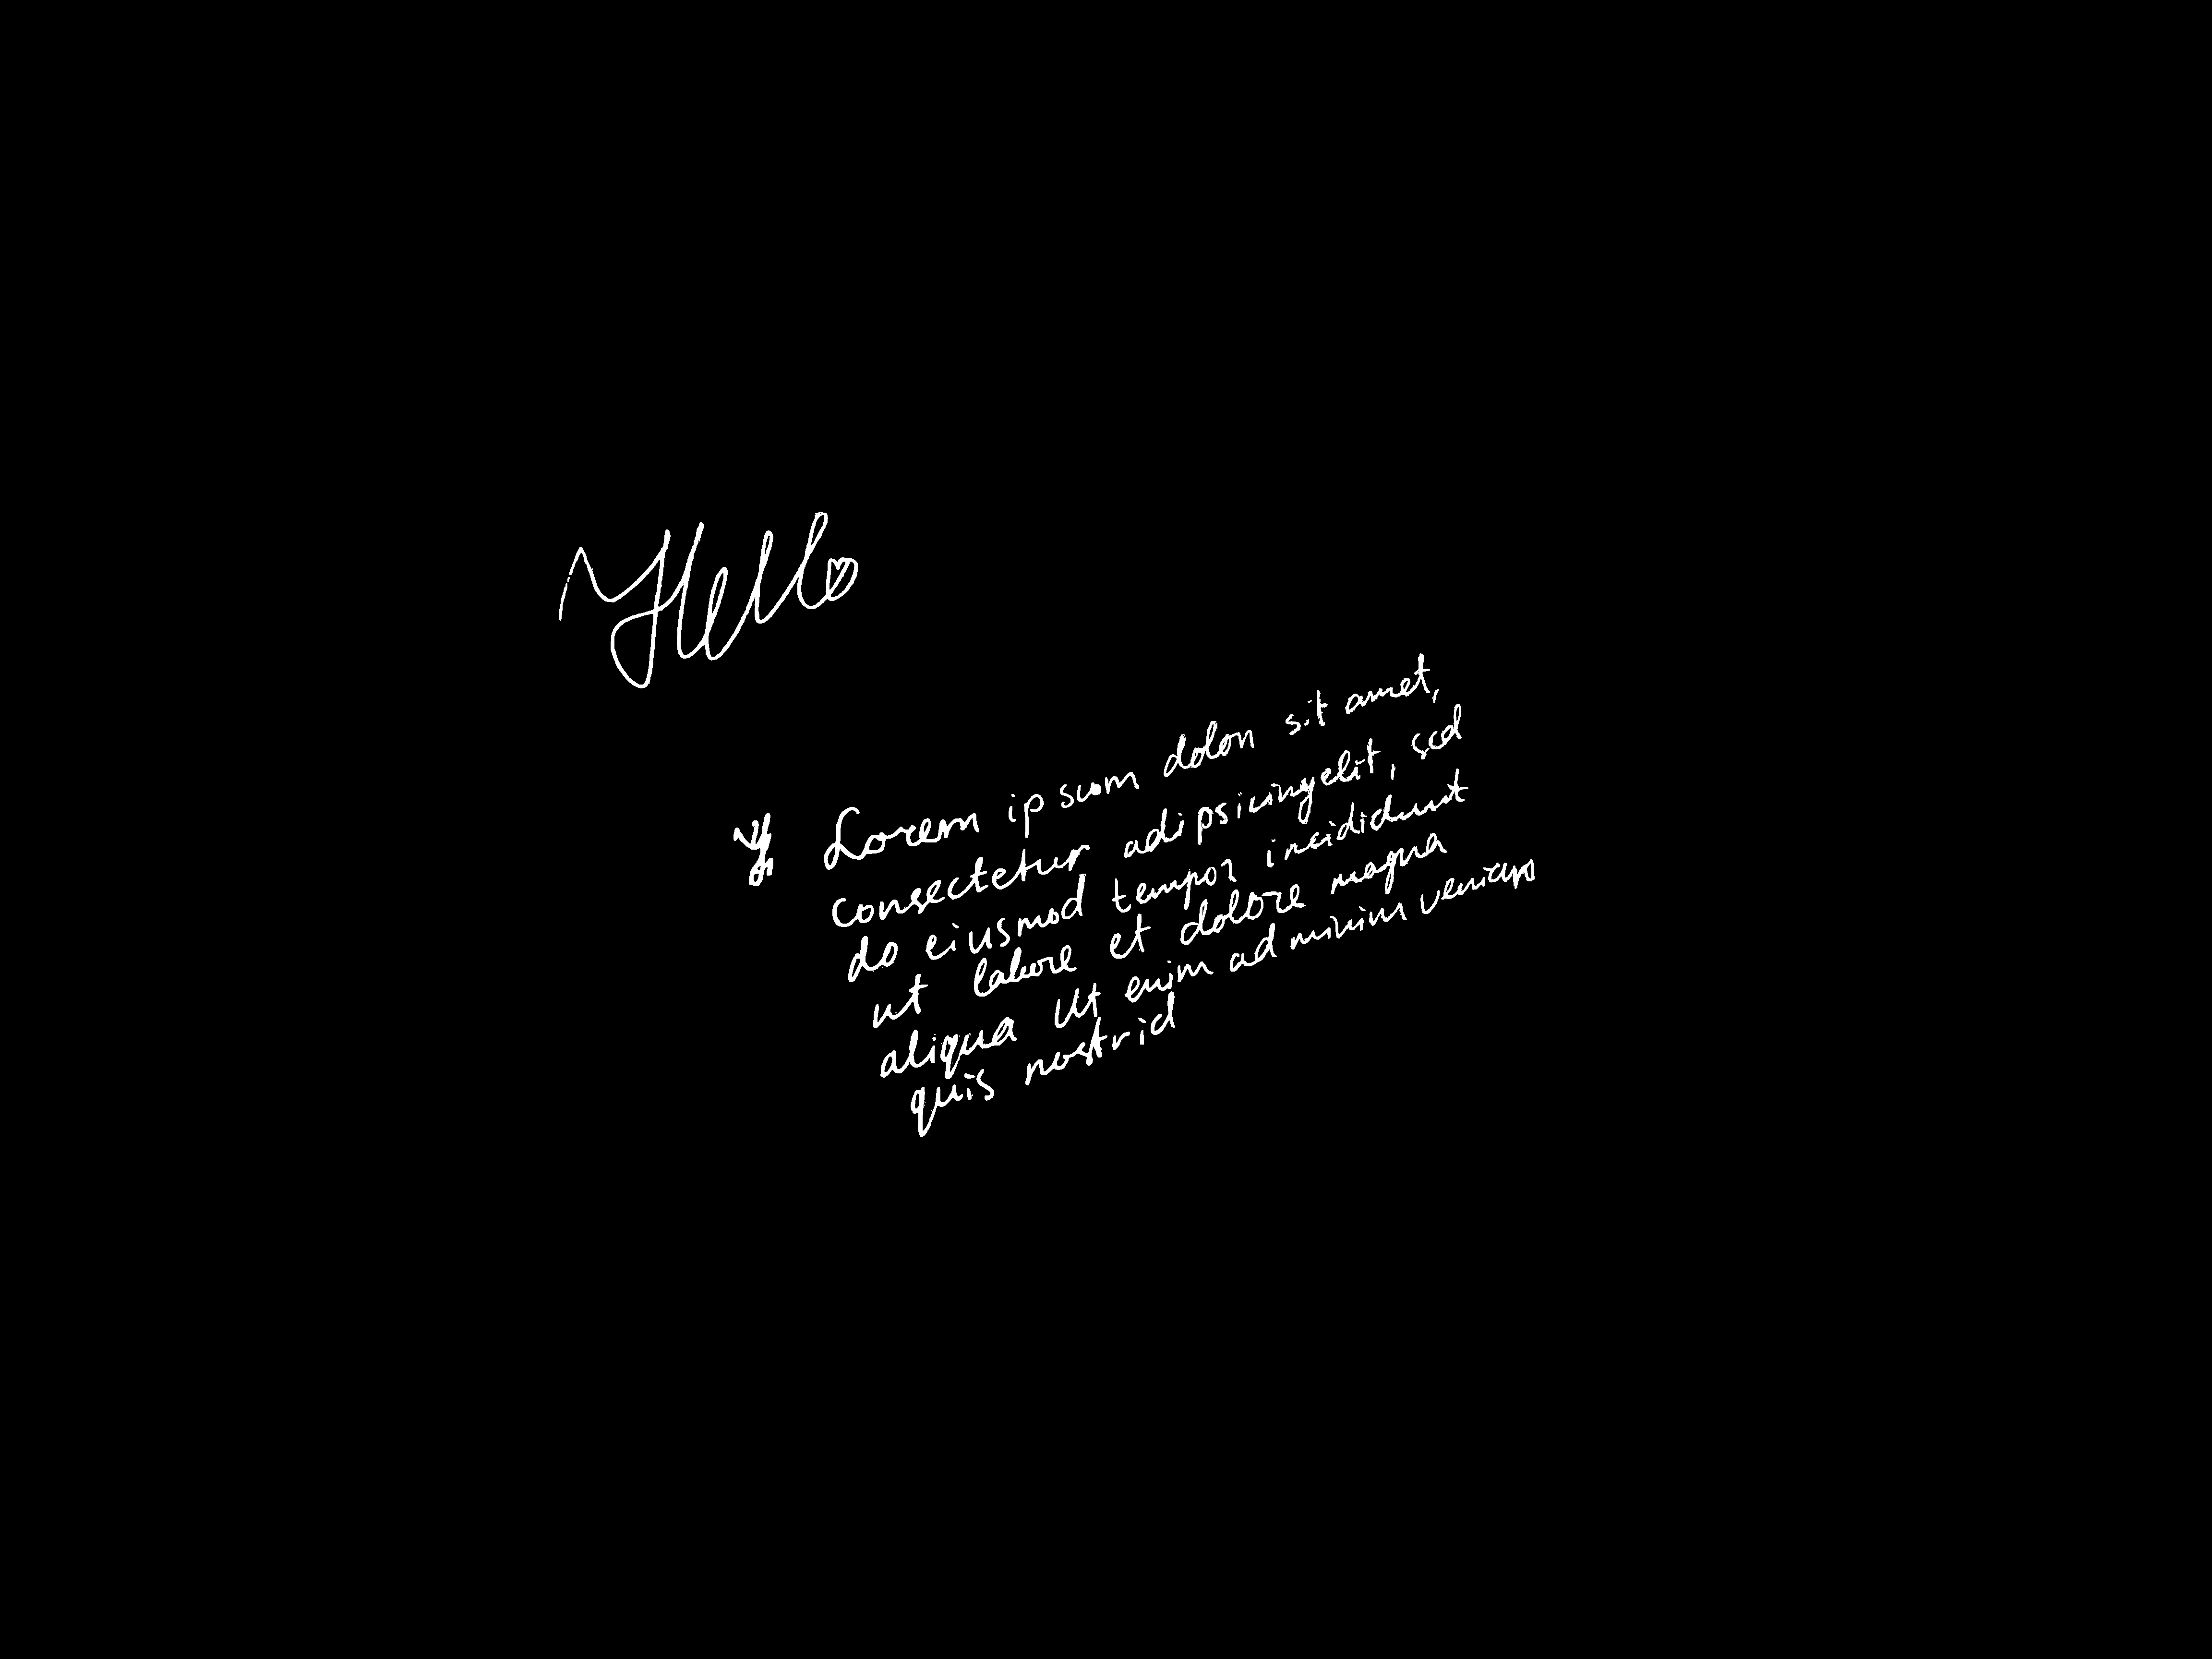 Hello
Lorem ipsum dolor sit amet,
consectetur adipsicing elit, sed
do eiusmod tempor incididunt
ut labore et dolore magna
aliqua Ut enim ad minim veniam
quis nostrid